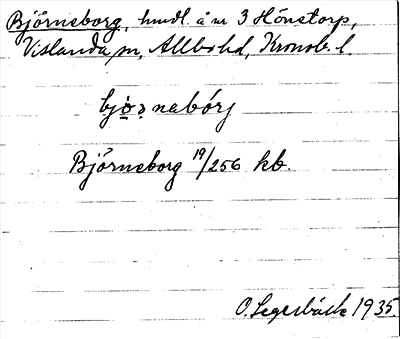 Björneborg, hmdl. å nr 3 Hönetorp,
Vislanda sn, Allbo hd, Kronob. l.
bjö̀ṛnebórj
Björneborg 19/256 kb.
O. Legerbäck 1935.